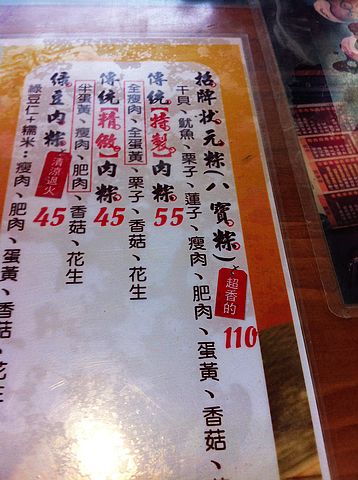 招牌狀元粽(八寶粽)超香的 110
干貝、魷魚、栗子、蓮子、瘦肉、肥肉、蛋黃、香菇、
傳統【特製】肉粽 55
全瘦肉、全蛋黃、栗子、香菇、花生
傳統【精緻】肉粽 45
半蛋黃、瘦肉、肥肉、香菇、花生
綠豆肉粽 清涼退火 45
綠豆仁+糯米:瘦肉、肥肉、蛋黃、香菇、花生